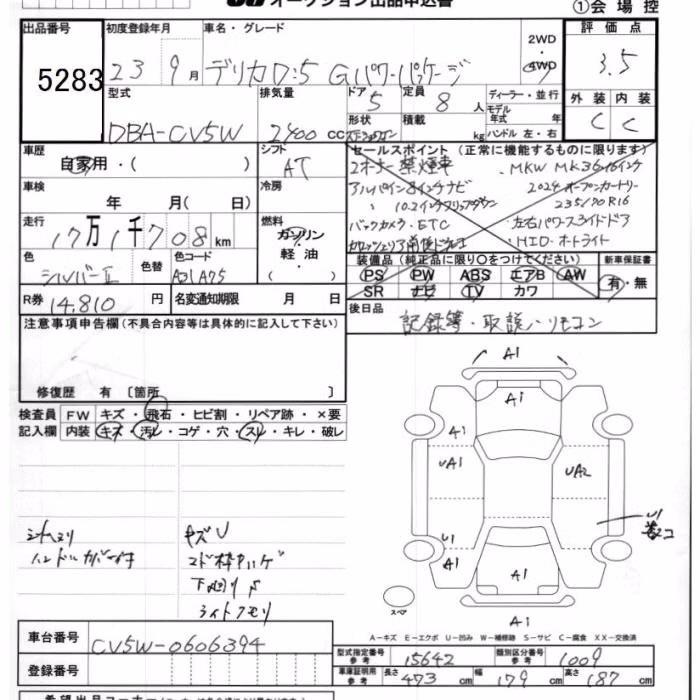 オークション出品申込書
①会場控
出品番号
5283
初度登録年月
23 9月
車名・グレード
デリカD:5 Gパワーパッケージ
2WD
・
4WD
評価点
3.5
外装 内装
C C
型式
DBA-CV5W
排気量
2400 cc
ドア
5
定員
8 人
形状
積載
kg
ディーラー・並行
モデル
年式 年
ハンドル 左・右
車歴
自家用・( )
シフト
AT
車検
年 月( 日)
冷房
走行
17万1千708km
燃料
ガソリン
軽油
( )
色
シルバーII
色替
色コード
A31A75
R券
14,810 円
名変通知期限 月 日
セールスポイント (正常に機能するものに限ります)
2オーナー禁煙車
アルパイン8インチナビ
〃 10.2インチフリップダウン
バックカメラ・ETC
・MKW MK36 16インチ
2024 オープンカントリー
235/70R16
・左右パワースライドドア
・HID・オートライト
装備品 (純正品に限り○をつけてください)
PS PW ABS エアB AW
SR ナビ TV カワ
新車保証書
有・無
後日品
記録簿・取説・リモコン
注意事項申告欄(不具合内容等は具体的に記入して下さい)
修復歴 有 〔箇所 〕
検査員 FW キズ・飛石・ヒビ割・リペア跡・×要
記入欄 内装 キズ・汚レ・コゲ・穴・スレ・キレ・破レ
シートヘタリ
ハンドルカバー付
キズU
コド枠ハゲ
下廻りS
ライトクモリ
A1
A1
A1
UA1
UA2
U1
U1
A1
A1
A1
スペア
A-キズ E-エクボ U-凹み W-補修跡 S-サビ C-腐食 XX-交換済
車台番号
CV5W-0606394
登録番号
型式指定番号
参考
15642
類別区分番号
参考
1009
車庫証明用
参考
長さ 473 cm 幅 179 cm 高さ 187 cm